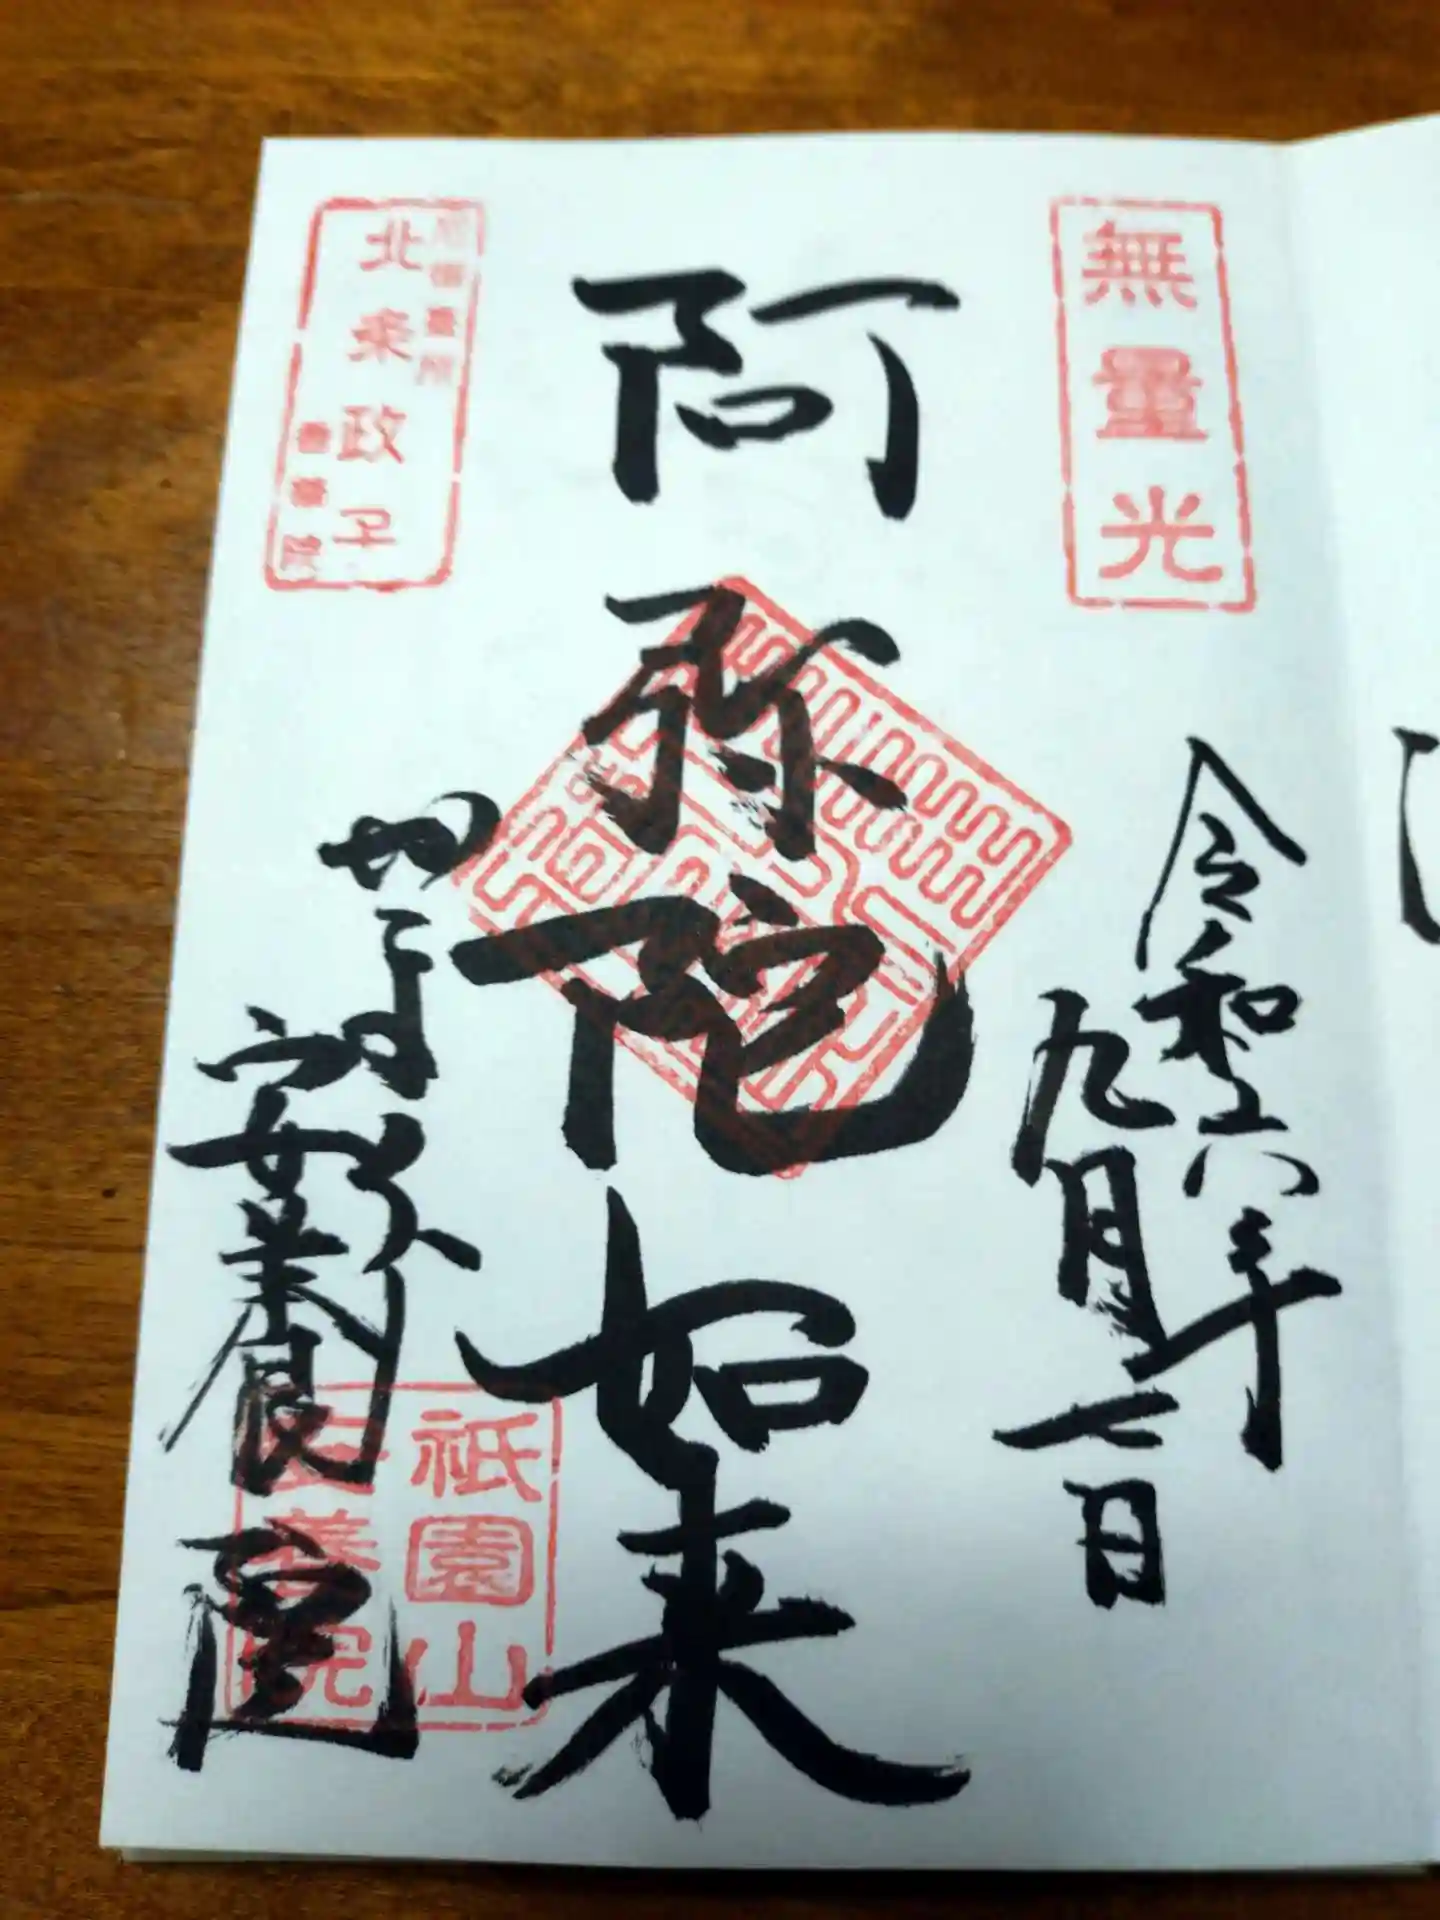 無量光
令和六年
九月七日
阿弥陀如来
北条政子
安養院
祇園山
安養院